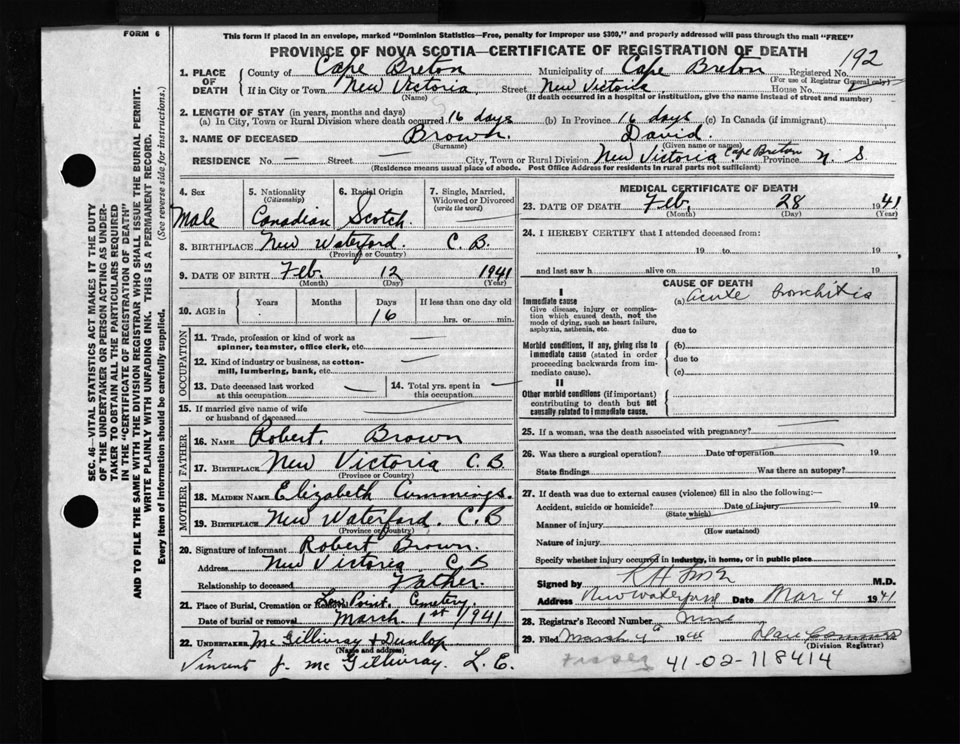 FORM 6
This form if placed in an envelope, marked "Dominion Statistics—Free, penalty for improper use $300," and properly addressed will pass through the mail "FREE"
PROVINCE OF NOVA SCOTIA—CERTIFICATE OF REGISTRATION OF DEATH
192
1. PLACE OF DEATH County of Cape Breton Municipality of Cape Breton Registered No.
(For use of Registrar General only)
If in City or Town New Victoria Street New Victoria House No.
(Name) (If death occurred in a hospital or institution, give the name instead of street and number)
2. LENGTH OF STAY (in years, months and days)
(a) In City, Town or Rural Division where death occurred 16 days (b) In Province 16 days (c) In Canada (if immigrant)
3. NAME OF DECEASED Brown. David.
(Surname) (Given name or names)
RESIDENCE No. — Street City, Town or Rural Division New Victoria Cape Breton Province N. S.
(Residence means usual place of abode. Post Office Address for residents in rural parts not sufficient)
SEC. 46—VITAL STATISTICS ACT MAKES IT THE DUTY
OF THE UNDERTAKER OR PERSON ACTING AS UNDER-
TAKER TO OBTAIN ALL THE PARTICULARS REQUIRED
IN THE "CERTIFICATE OF REGISTRATION OF DEATH"
AND TO FILE THE SAME WITH THE DIVISION REGISTRAR WHO SHALL ISSUE THE BURIAL PERMIT.
WRITE PLAINLY WITH UNFADING INK. THIS IS A PERMANENT RECORD.
Every item of Information should be carefully supplied. (See reverse side for instructions.)
4. Sex
Male
5. Nationality
(Citizenship)
Canadian
6. Racial Origin
Scotch.
7. Single, Married,
Widowed or Divorced
(write the word)
8. BIRTHPLACE New Waterford. C. B.
(Province or Country)
9. DATE OF BIRTH Feb. 12 1941
(Month) (Day) (Year)
10. AGE in Years Months Days If less than one day old
16 hrs. or min.
OCCUPATION
11. Trade, profession or kind of work as
spinner, teamster, office clerk, etc.
12. Kind of industry or business, as cotton-
mill, lumbering, bank, etc.
13. Date deceased last worked
at this occupation
14. Total yrs. spent in
this occupation
15. If married give name of wife
or husband of deceased
FATHER
16. NAME Robert. Brown
17. BIRTHPLACE New Victoria C. B.
(Province or Country)
MOTHER
18. MAIDEN NAME Elizabeth Cummings.
19. BIRTHPLACE New Waterford. C. B
(Province or Country)
20. Signature of informant Robert Brown.
Address New Victoria C B
Relationship to deceased Father.
21. Place of Burial, Cremation or Removal Low Point. Cemetery.
Date of burial or removal March 1st 1941
22. UNDERTAKER Mc Gillivray & Dunlop
(Name and address)
Vincent J. Mc Gillivray. L. E.
MEDICAL CERTIFICATE OF DEATH
23. DATE OF DEATH Feb. 28 1941
(Month) (Day) (Year)
24. I HEREBY CERTIFY that I attended deceased from:
19 to 19
and last saw h alive on 19
CAUSE OF DEATH
I
Immediate cause
Give disease, injury or complica-
tion which caused death, not the
mode of dying, such as heart failure,
asphyxia, asthenia, etc.
(a) acute bronchitis
due to
Morbid conditions, if any, giving rise to
immediate cause (stated in order
proceeding backwards from im-
mediate cause).
(b)
due to
(c)
II
Other morbid conditions (if important)
contributing to death but not
causally related to immediate cause.
25. If a woman, was the death associated with pregnancy?
26. Was there a surgical operation? Date of operation 19
State findings Was there an autopsy?
27. If death was due to external causes (violence) fill in also the following:—
Accident, suicide or homicide? Date of injury 19
(State which)
Manner of injury
(How sustained)
Nature of injury
Specify whether injury occurred in industry, in home, or in public place
Signed by M.D.
Address New Waterford Date Mar 4 1941
28. Registrar's Record Number
29. Filed March 4 19
(Division Registrar)
41-02-118414